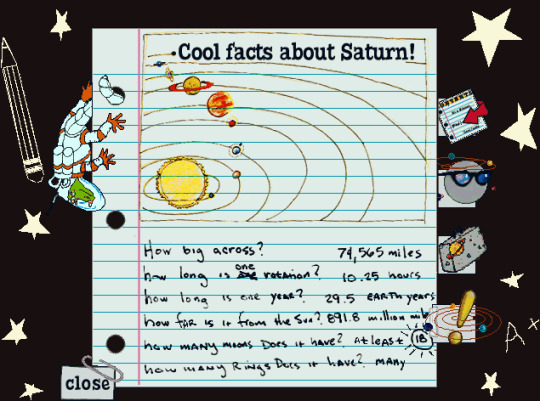 Cool facts about Saturn!
How big across? 74,565 miles
how long is one rotation? 10.25 hours
how long is one year? 29.5 EARTH years
how far is it from the Sun? 891.8 million mile
how many moons Does it have? at least 18
how many Rings Does it have? many
close
A+